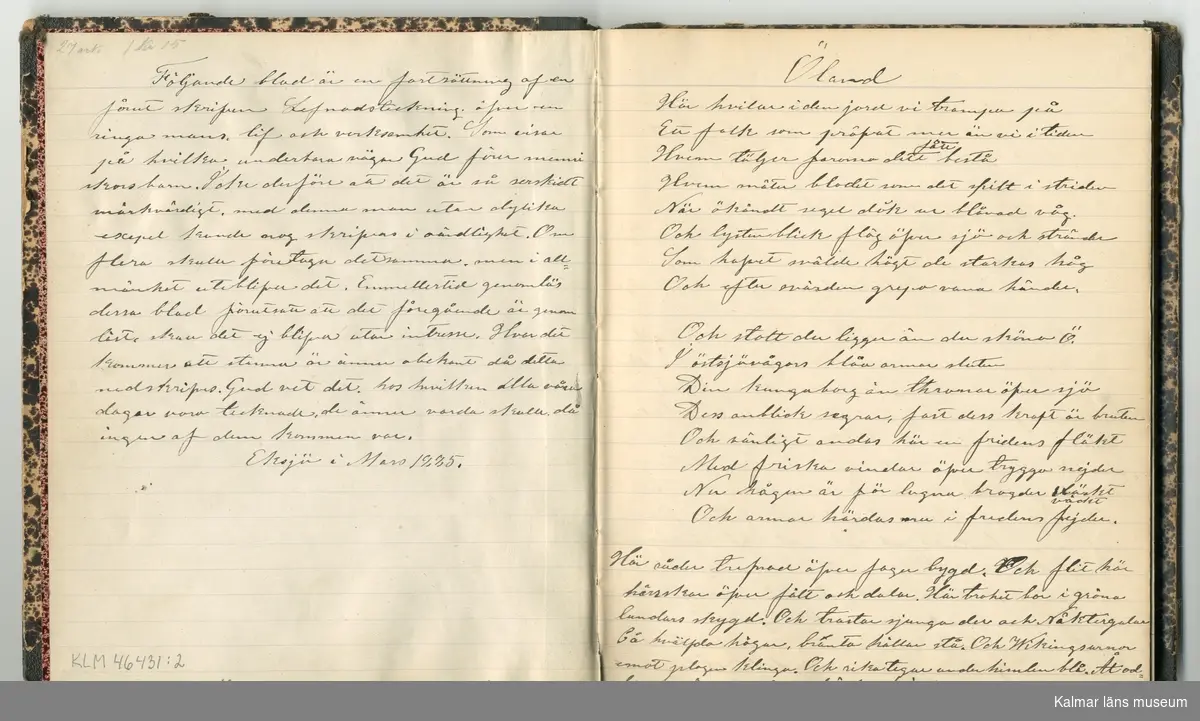 27 ark. 1 Kr 15
Följande blad är en fortsättning af en
förut skrifven Lefnadsteckning. öfver en
ringa mans. lif och verksamhet. Som visar
på hvilka underbara vägar Gud förer menni
skors barn. Icke derföre att det är så serskildt
märkvärdigt, med denna man utan dylika
exepel kunde nog skrifvas i oändlighet. Om
flera skulle företaga detsamma. men i all=
mänhet uteblifver det. Emmellertid genomläs
dessa blad förutsatt att det föregående är genom
läst, skall det ej blifva utan intresse. Hvar det
kommer att stanna är ännu obekant då detta
nedskrifves. Gud vet det. hos hvilken alla våra
dagar voro tecknade, de ännu varda skulle, då
ingen af dem kommen var.
Eksjö i Mars 1925.
KLM 46431:2
Öland
Här hvilar i den jord vi trampa på
Ett folk som pröfvat mer än vi i tiden
Hvem täljer farorna dett fått bestå
Hvem mäter blodet som det spilt i striden
När okändt segel dök ur blånad våg.
Och lysten blick flög öfver sjö och stränder
Som hafvet svälde högt de starkas håg
Och efter svärden grepo vana händer.
Och stolt du ligger än du sköna Ö.
I östsjövågors blåa armar sluten
Din kungaborg än thronar öfver sjö
Dess anblick segrar, fast dess kraft är bruten
Och sänligt andas här en fridens fläkt
Med friska vindar öfver trygga nejder
Ner hågen är för lugna bragder väckt
väckt
Och armar härdas nu i fredens fejder.
Här råder trefnad öfver fager bygd. Och flit här
härsskar öfver fält och dalar. Här trohet bor i gröna
lundars skygd. Och trastar sjunga der och Näktergalar
På hvälfda högar, branta hällar stå. Och Vikingsarmar
emot plogen klinga. Och rika tegar under himlen blå. Åt od=
Kalmar läns museum